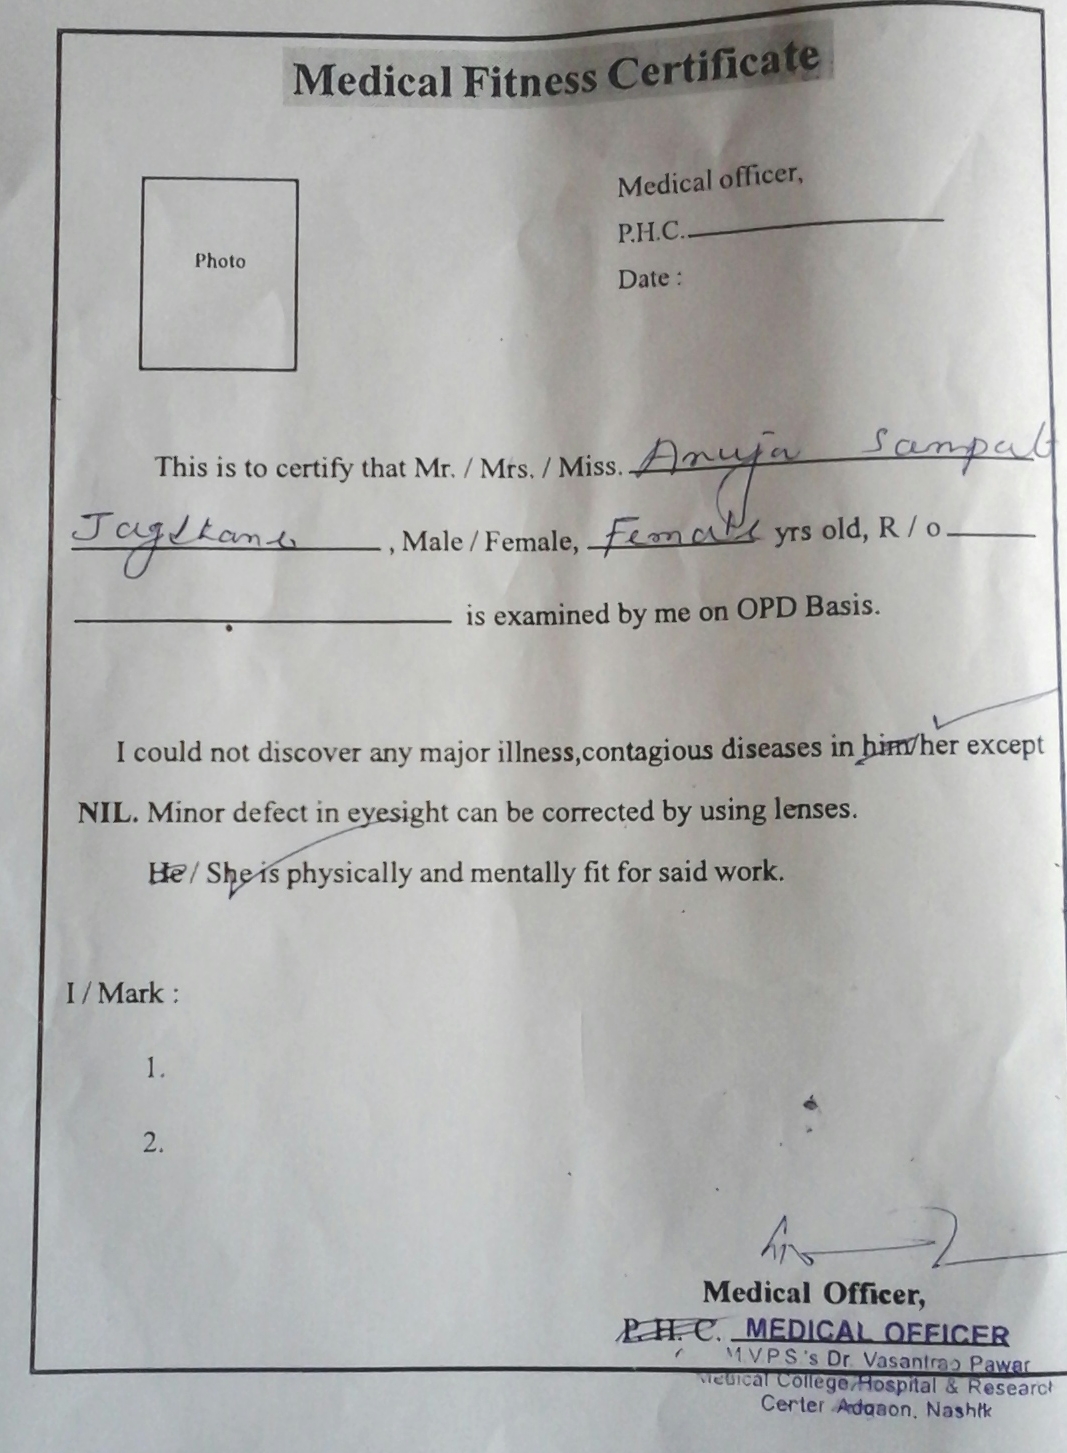 Medical Fitness Certificate
Photo
Medical officer,
P.H.C.
Date :
This is to certify that Mr. / Mrs. / Miss. Anuja Sampat
Jagtkane , Male / Female, Female yrs old, R / o
is examined by me on OPD Basis.
I could not discover any major illness,contagious diseases in him/her except
NIL. Minor defect in eyesight can be corrected by using lenses.
He / She is physically and mentally fit for said work.
I / Mark :
1.
2.
Medical Officer,
P. H. C. MEDICAL OFFICER
M.V.P.S.'s Dr. Vasantrao Pawar
Medical College, Hospital & Research
Certer Adgaon, Nashik